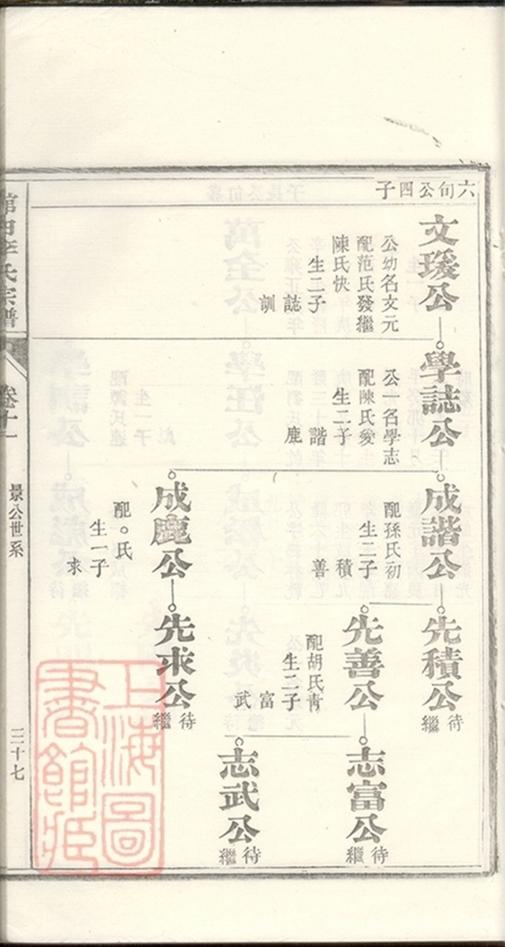 六旬公四子
文瑗公
公幼名文元
配范氏發繼
陳氏快
生二子
誌
訓
學誌公
公一名學志
配陳氏愛
生二子
諧
鹿
成諧公
配孫氏初
生二子
積
善
先積公
待繼
先善公
配胡氏青
生二子
富
武
志富公
待繼
志武公
待繼
成鹿公
配○氏
生一子
求
先求公
待繼
李氏宗譜
卷十一
景公世系
三十七
上海圖書館藏